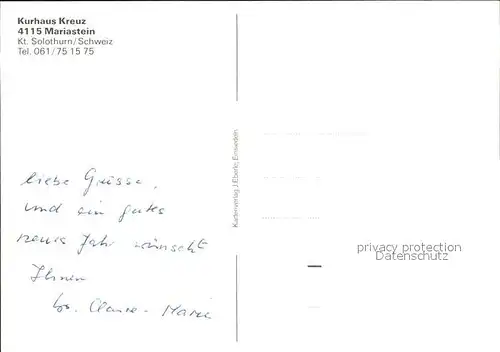 Kurhaus Kreuz
4115 Mariastein
Kt. Solothurn/Schweiz
Tel. 061/75 15 75
Kartenverlag J. Eberle, Einsiedeln
liebe Grüsse,
und ein gutes
neues Jahr wünscht
Ihnen
Claire-Marie
privacy protection
Datenschutz